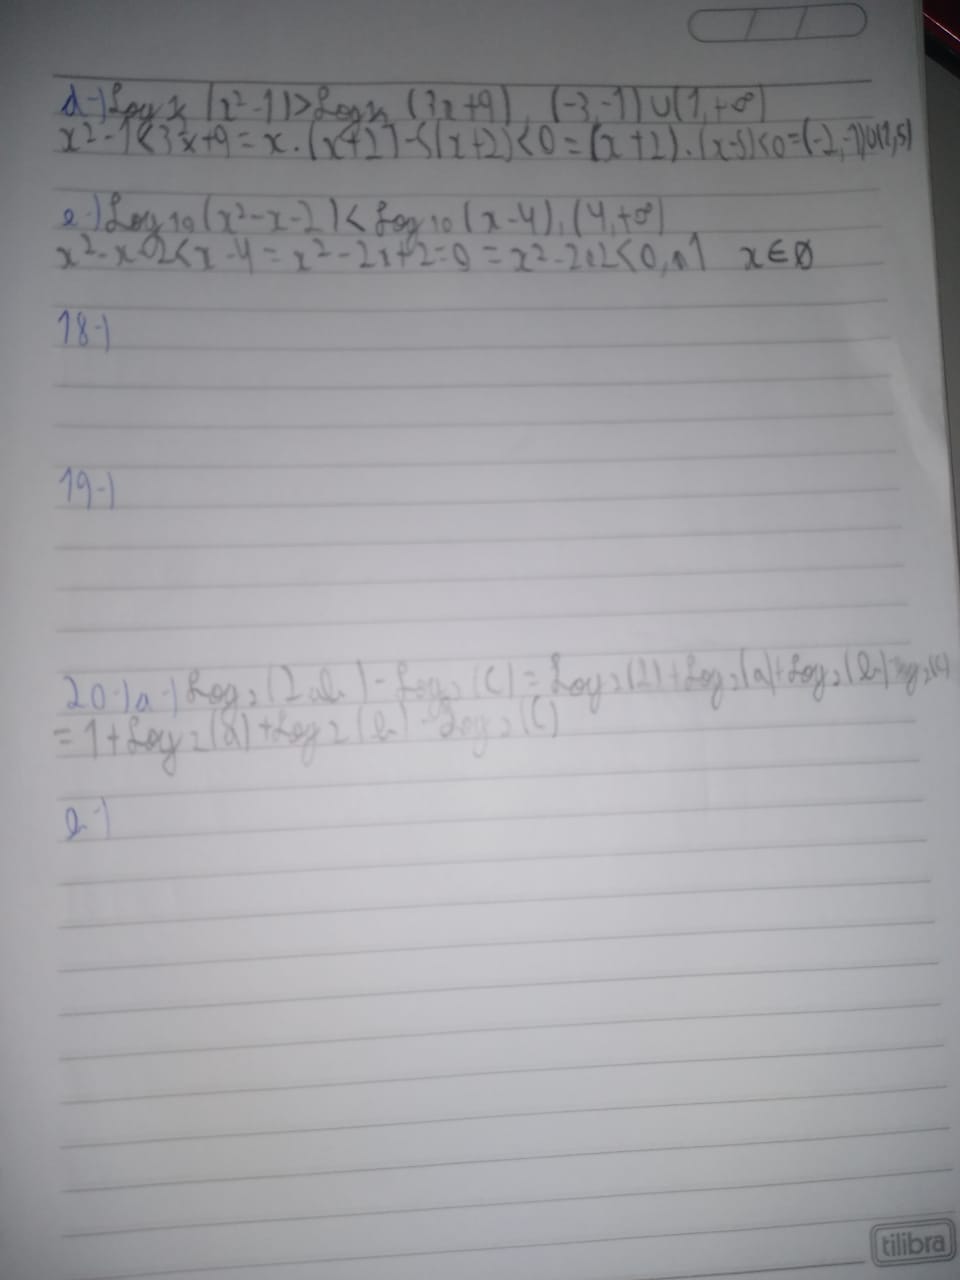 d-) Log ½ (x²-1) > Log ½ (3x+9), (-3,-1)∪(1,+∞)
x²-1<3x+9 = x.(x+2)-5(x+2)<0 = (x+2).(x-5)<0 = (-2,-1)∪(1,5)
e-) Log₁₀(x²-x-2) < Log₁₀(x-4), (4,+∞)
x²-x-2<x-4 = x²-2x+2=0 = x²-2x+2<0, x∈∅
18-)
19-)
20-)a-) Log₂(2ab)-Log₂(c) = Log₂(2)+Log₂(a)+Log₂(b)-Log₂(c)
=1+Log₂(a)+Log₂(b)-Log₂(c)
b-)
tilibra